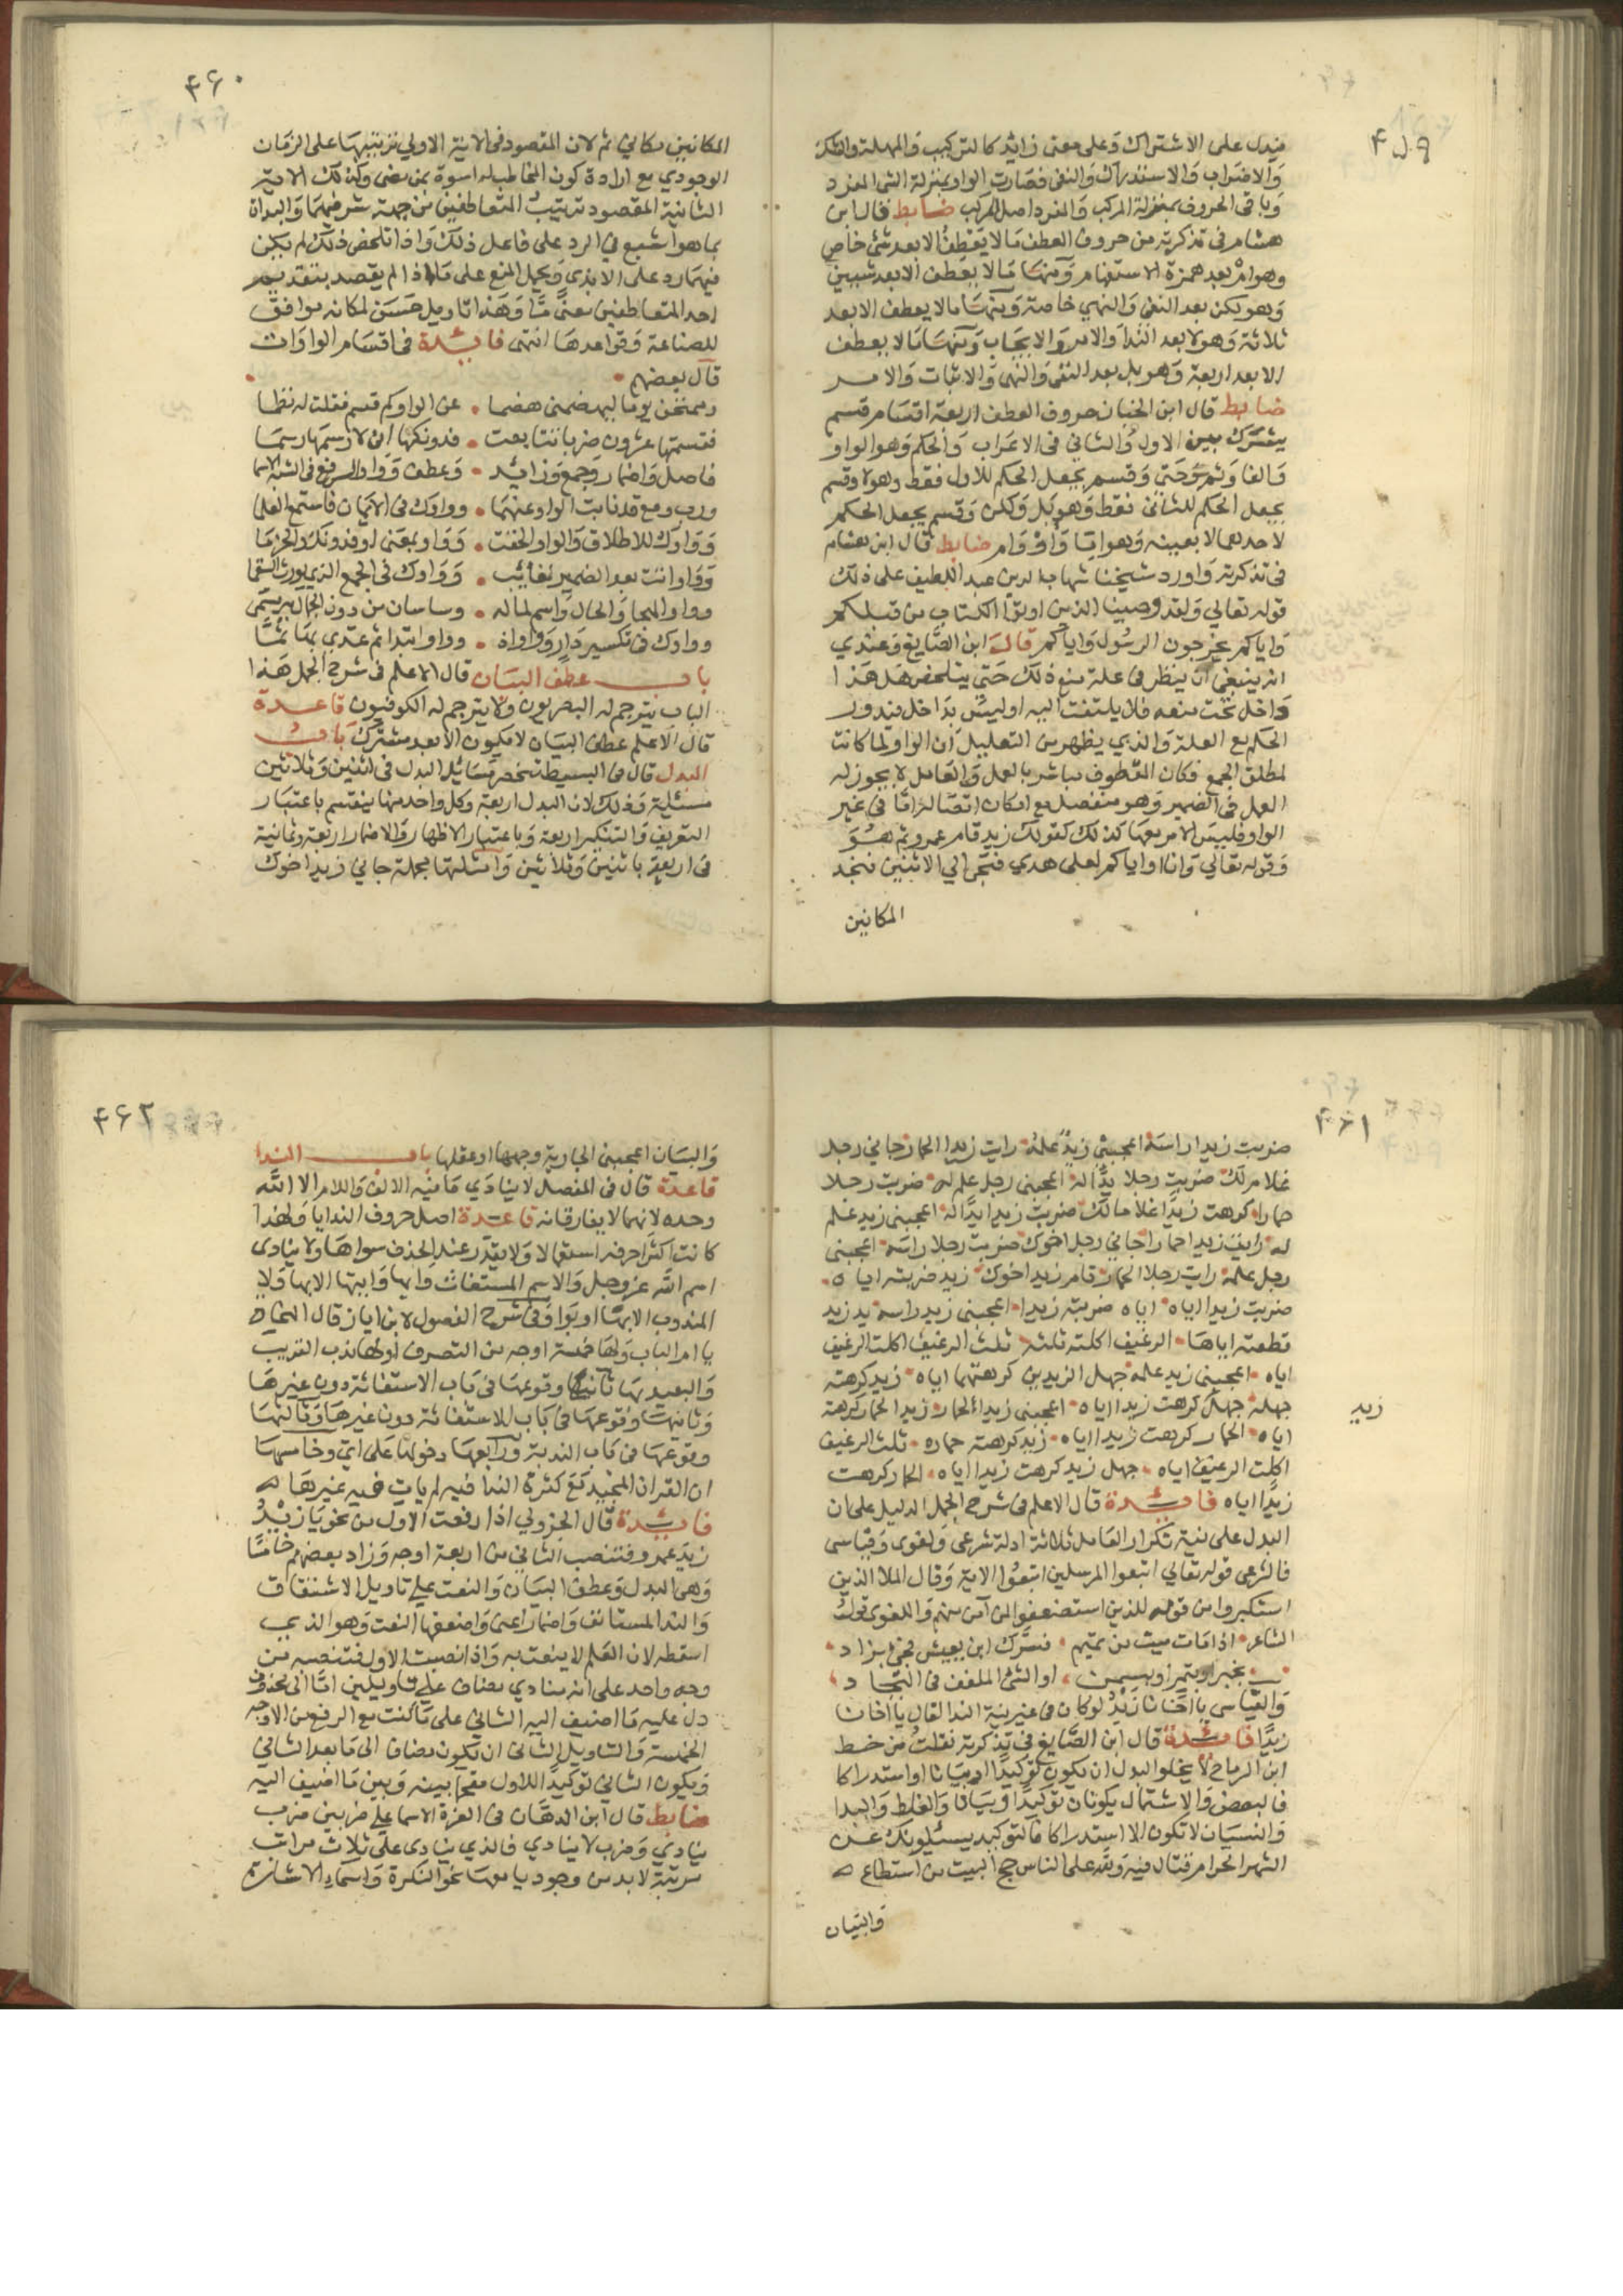 ٤٥٩
فيدل على الاشتراك وعلى معنى زائد كالترتيب والمهلة والشك
والاضراب والاستدراك والنفى فصارت الواو بمنزلة الشى المفرد
وباقى الحروف بمنزلة المركب والمفرد اصل المركب ضابط قال ابن
هشام فى تذكرته من حروف العطف ما لا يعطف الا بعد شئ خاص
وهو ام بعد همزة الاستفهام ومنها ما لا يعطف الا بعد شيين
وهو لكن بعد النفى والنهي خاصة ومنها ما لا يعطف الا بعد
ثلاثة وهو لا بعد الندا والامر والايجاب ومنها ما لا يعطف
الا بعد اربعة وهو بل بعد النفى والنهى والاثبات والامر
ضابط قال ابن الخباز حروف العطف اربعة اقسام قسم
يشرك بين الاول والثاني فى الاعراب والحكم وهو الواو
والفا وثم وحتى وقسم يجعل الحكم للاول فقط وهو لا وقسم
يجعل الحكم للثانى فقط وهو بل ولكن وقسم يجعل الحكم
لاحدهما لا بعينه وهو اما واو وام ضابط قال ابن هشام
فى تذكرته واورد شيخنا شهاب الدين عبد اللطيف على ذلك
قوله تعالي ولقد وصينا الذين اوتوا الكتاب من قبلكم
واياكم يخرجون الرسول واياكم قال ابن الصايغ وعندي
انه ينبغي ان ينظر فى علة منع ذلك حتى يتلخص هل هذا
داخل تحت منعه فلا يلتفت اليه او ليس بداخل فيدور
الحكم مع العلة والذي يظهر من التعليل ان الواو لما كانت
لمطلق الجمع فكان المعطوف مباشر بالعمل والعامل لا يجوز له
العمل فى الضمير وهو منفصل مع امكان اتصاله اما فى غير
الواو فليس الامر معها كذلك كقولك زيد قام عمرو ثم هو
وقوله تعالي وانا او اياكم لعلى هدي فنجى الي الاثنين فنجد
المكانين
٤٦٠
المكانين مكاني ثم لان المقصود فى الاية الاولي ترتيبها على الزمان
الوجودي مع ارادة كون المخاطب له اسوة بمن مضى وكذلك الاية
الثانية المقصود ترتيب المتعاطفين من جهة شرفهما والبداة
بما هو اشبع في الرد على فاعل ذلك واذا تلخص ذلك لم يكن
فيهما رد على الابذي ويحمل المنع على ما اذا لم يقصد بتقديم
احد المتعاطفين معنى ما وهذا تاويل حسن لمكانه موافق
للصناعة وقواعدها انتهى فائدة فى اقسام الواوات
قال بعضهم
وممتحن يوما ليهضمنى هضما • عن الواو كم قسم فقلت له نظما
فقسمتها عشرون ضربا تتابعت • فدونكها انى لارسمها رسما
فاصل واضمار وجمع وزائد • وعطف وواو الرفع فى الستة الاسما
ورب ومع قد نابت الواو عنهما • وواوك فى الايمان فاستمع العلما
وواوك للاطلاق والواو الحقت • وواو بمعنى او فدونك والحزما
وواو اتت بعد الضمير لغائب • وواوك فى الجمع الذي يورث السقما
وواو الهجا والحال واسم لما له • وساسان من دون الجمال به يسمى
وواوك فى تكسير دار وواواة • وواو ابتدا ثم عدى بها ثما
باب عطف البيان قال الاعلم فى شرح الجمل هذا
الباب يترجم له البصريون ولا يترجم له الكوفيون قاعدة
قال الاعلم عطف البيان لا يكون الا بعد مشترك باب
البدل قال فى البسيط تنحصر مسائل البدل فى اثنين وثلاثين
مسئلة وذلك لان البدل اربعة وكل واحد منها ينقسم باعتبار
التعريف والتنكير اربعة وباعتبار الاظهار والاضمار اربعة وثمانية
فى اربعة باثنين وثلاثين وامثلتها مجملة جاني زيد اخوك
٤٦١
ضربت زيدا راسه اعجبنى زيد علمه رايت زيدا الحمار جاني رجل
غلام لك ضربت رجلا يدا له اعجبنى رجل علم له ضربت رجلا
حمارا كرهت زيدا غلاما لك ضربت زيدا يدا له اعجبنى زيد علم
له رايت زيدا حمارا جاني رجل اخوك ضربت رجلا راسه اعجبنى
رجل علمه رايت رجلا الحمار قام زيد اخوك زيد ضربته اياه
ضربت زيدا اياه اياه ضربته زيدا اعجبنى زيد راسه يد زيد
قطعته اياها الرغيف اكلته ثلثه ثلث الرغيف اكلت الرغيف
اياه اعجبنى زيد علمه جهل الزيدين كرهتهما اياه زيد كرهته
جهله جهل كرهت زيدا اياه اعجبنى زيد الحمار زيد الحمار كرهته
اياه الحمار كرهت زيدا اياه زيد كرهته حماره ثلث الرغيف
اكلت الرغيف اياه جهل زيد كرهت زيدا اياه الحمار كرهت
زيدا اياه فائدة قال الاعلم فى شرح الجمل الدليل على ان
البدل على نية تكرار العامل ثلاثة ادلة شرعى ولغوى وقياسى
فالشرعى قوله تعالي اتبعوا المرسلين اتبعوا الاية وقال الملا الذين
استكبروا من قومه للذين استضعفوا لمن آمن منهم واللغوى قول
الشاعر اذا مات ميت من تميم • فسرك ان يعيش فجئ بزاد
بخبز او بتمر او بسمن • او الشئ الملفف فى البجاد
والقياسي يا اخانا زيد لو كان فى غير نية الندا لقال يا اخانا
زيدا فائدة قال ابن الصايغ فى تذكرته نقلت من خط
ابن الرماح لا يخلو البدل ان يكون توكيدا او بيانا او استدراكا
فالبعض والاشتمال يكونان توكيدا وبيانا والغلط والبدا
والنسيان لا تكون الا استدراكا فالتوكيد يسئلونك عن
الشهر الحرام قتال فيه ولله على الناس حج البيت من استطاع
زيد
والبيان
٤٦٢
والبيان اعجبنى الجارية وجهها او عقلها باب الندا
قاعدة قال فى المفصل لا ينادي ما فيه الالف واللام الا الله
وحده لانهما لا يفارقانه قاعدة اصل حروف الندا يا ولهذا
كانت اكثر احرفه استعمالا ولا يقدر عند الحذف سواها ولا ينادى
اسم الله عز وجل والاسم المستغاث وايها وايتها الا بها ولا
المندوب الا بها او بوا وفى شرح الفصول لابن اياز قال النحاة
يا ام الباب ولها خمسة اوجه من التصرف اولها نداء القريب
والبعيد بها ثانيها وقوعها فى باب الاستغاثة دون غيرها
وثانيها وقوعها فى باب الاستغاثة دون غيرها وثالثها
وقوعها فى باب الندبة ورابعها دخولها على اي وخامسها
ان القران المجيد مع كثرة الندا فيه لم يات فيه غيرها
فائدة قال الجزولي اذا رفعت الاول من نحو يا زيد
زيد عمرو فتنصب الثاني من اربعة اوجه وزاد بعضهم خامسا
وهى البدل وعطف البيان والنعت على تاويل الاشتقاق
والندا المستانف واضمار اعنى واضعفها النعت وهو الذي
اسقطه لان العلم لا ينعت به واذا نصبت الاول فتنصبه من
وجه واحد على انه منادي مضاف على تاويلين اما الى محذوف
دل عليه ما اضيف اليه الثاني على ما كنت مع الرفع من الاوجه
الخمسة والتاويل الثانى ان يكون مضاف الى ما بعد الثاني
ويكون الثاني توكيدا للاول مقحما بينه وبين ما اضيف اليه
ضابط قال ابن الدهان فى الغرة الاسما على ضربين ضرب
ينادي وضرب لا ينادي فالذي ينادى على ثلاث مراتب
مرتبة لا بد من وجود يا معها نحو النكرة واسماء الاشارة